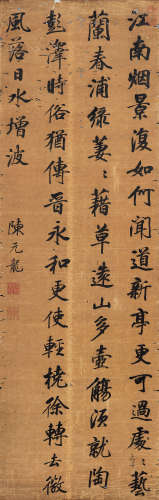 江南烟景復如何聞道新亭更可過處〻藝
蘭春浦綠萋〻藉草遠山多壺觴須就陶
彭澤時俗猶傳晉永和更使輕橈徐轉去微
風落日水增波
陳元龍